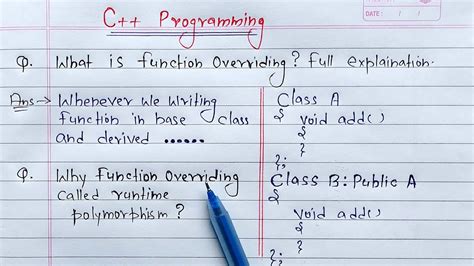 C++ Programming
DATE: / /
Q. What is function Overriding? Full explaination.
Ans → Whenever we writing
function in base class
and derived ......
Q. Why Function Overriding
called runtime
polymorphism?
Class A
{ void add()
{
}
};
Class B: Public A
{
void add()
{
}
};